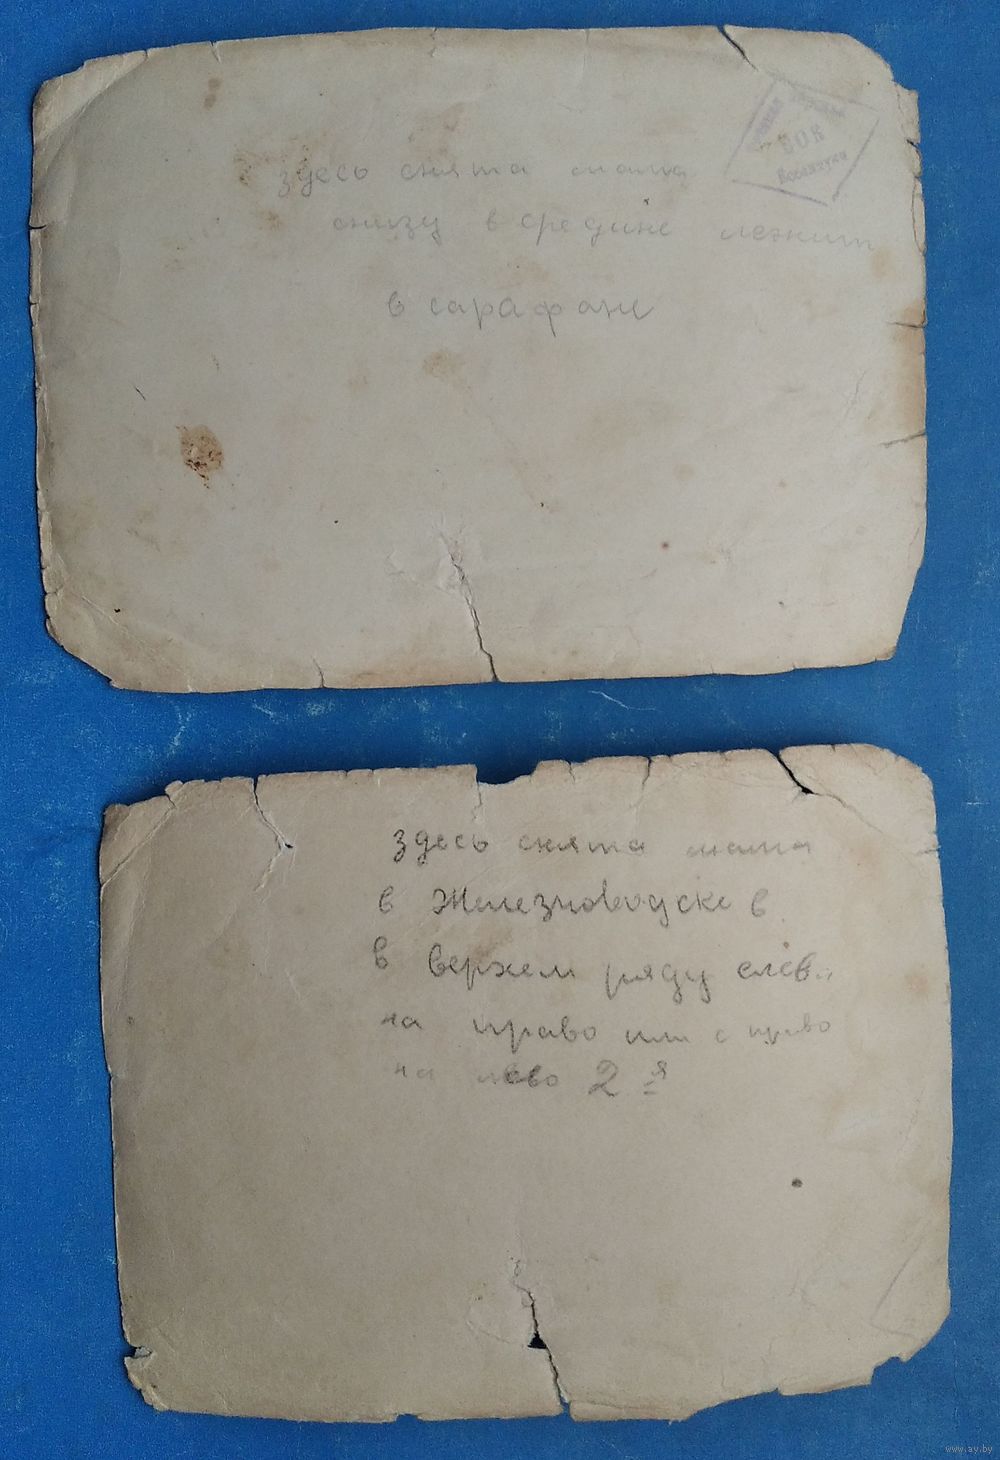 здесь снята мама
снизу в средине лежит
в сарафане
ВОК
здесь снята мама
в Железноводске в
в верхем ряду слева
на право или с право
на лево 2 я
www.ay.by